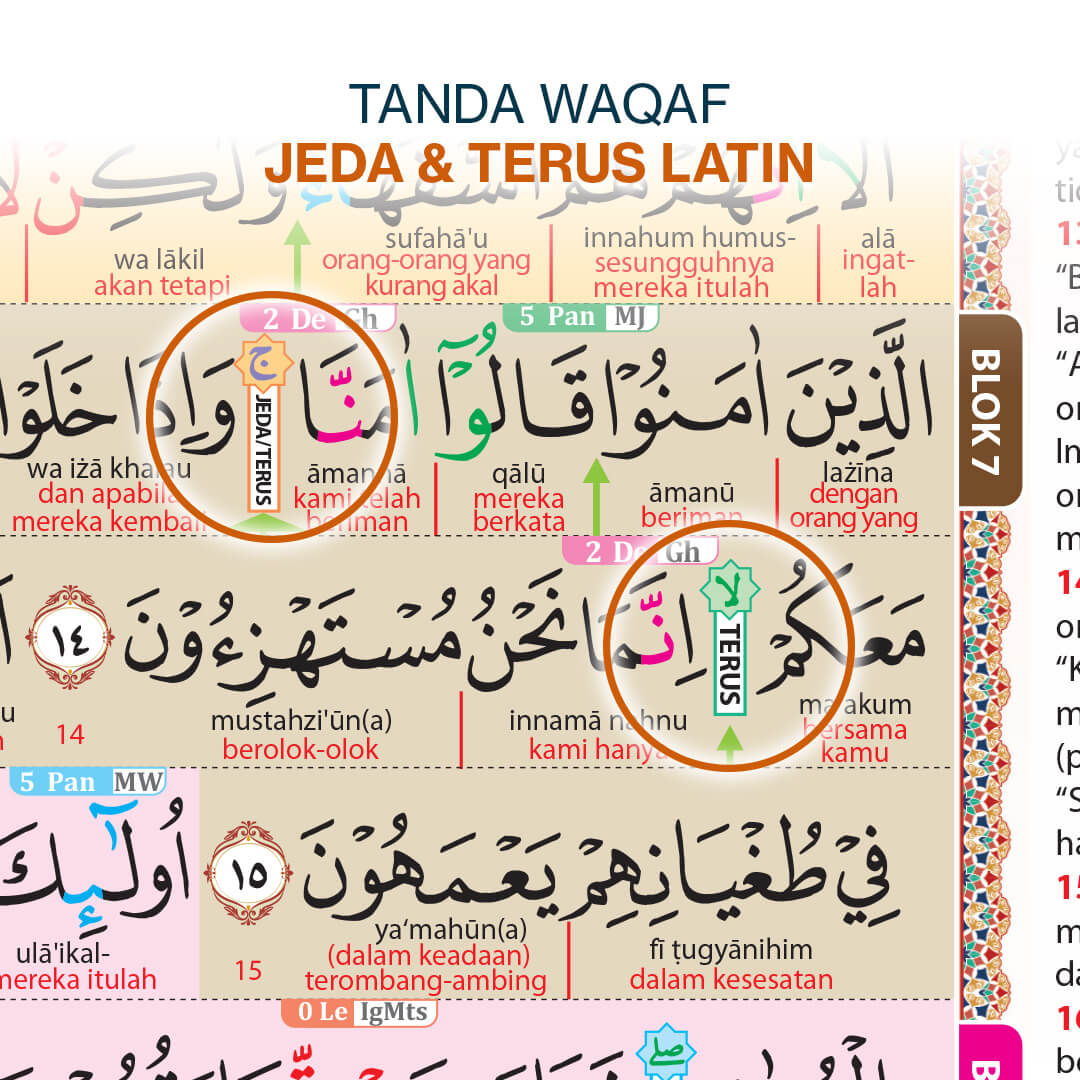 TANDA WAQAF
JEDA & TERUS LATIN
alā innahum humus- sufahā'u wa lākil
ingat-lah sesungguhnya mereka itulah orang-orang yang kurang akal akan tetapi
5 Pan MJ 2 De Gh
الَّذِيْنَ اٰمَنُوْا قَالُوْٓا اٰمَنَّا ۚ وَاِذَا خَلَوْا
ج JEDA/TERUS
lażīna āmanū qālū āmannā wa iżā khalau
dengan orang yang beriman mereka berkata kami telah beriman dan apabila mereka kembali
BLOK 7
2 De Gh
مَعَكُمْ ۙ اِنَّمَا نَحْنُ مُسْتَهْزِءُوْنَ ١٤
لا TERUS
ma‘akum innamā nahnu mustahzi'ūn(a) 14
bersama kamu kami hanya berolok-olok
5 Pan MW
فِيْ طُغْيَانِهِمْ يَعْمَهُوْنَ ١٥ اُولٰۤىِٕكَ
fī ṭugyānihim ya‘mahūn(a) 15 ulā'ikal-
dalam kesesatan (dalam keadaan) terombang-ambing mereka itulah
0 Le IgMts
صلى